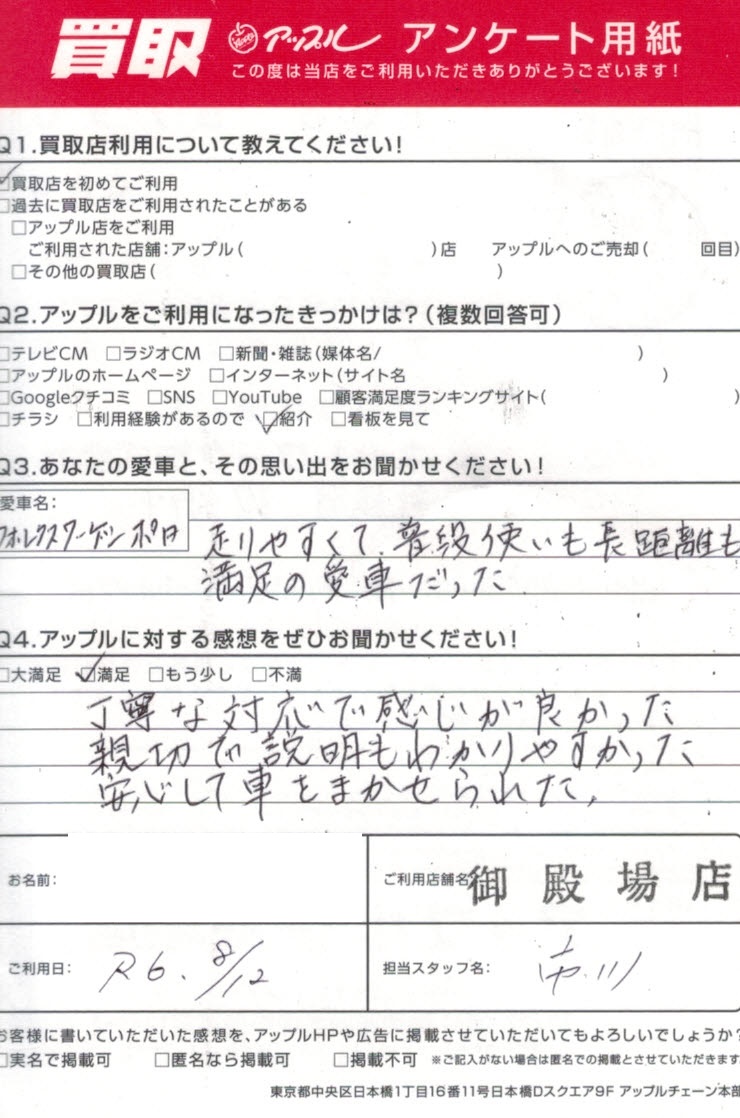 買取 アップル アンケート用紙
この度は当店をご利用いただきありがとうございます！
Q1.買取店利用について教えてください！
☑買取店を初めてご利用
□過去に買取店をご利用されたことがある
□アップル店をご利用
ご利用された店舗：アップル（ ）店 アップルへのご売却（ 回目）
□その他の買取店（ ）
Q2.アップルをご利用になったきっかけは？（複数回答可）
□テレビCM □ラジオCM □新聞・雑誌（媒体名/ ）
□アップルのホームページ □インターネット（サイト名 ）
□Googleクチコミ □SNS □YouTube □顧客満足度ランキングサイト（ ）
□チラシ □利用経験があるので ☑紹介 □看板を見て
Q3.あなたの愛車と、その思い出をお聞かせください！
愛車名：
フォルクスワーゲン ポロ
走りやすくて、普段使いも長距離も
満足の愛車だった
Q4.アップルに対する感想をぜひお聞かせください！
□大満足 ☑満足 □もう少し □不満
丁寧な対応で感じが良かった
親切で説明もわかりやすかった
安心して車をまかせられた。
お名前：
ご利用店舗名 御殿場店
ご利用日： R6. 8/12
担当スタッフ名： 市川
お客様に書いていただいた感想を、アップルHPや広告に掲載させていただいてもよろしいでしょうか？
□実名で掲載可 □匿名なら掲載可 □掲載不可 ※ご記入がない場合は匿名での掲載とさせていただきます
東京都中央区日本橋1丁目16番11号日本橋Dスクエア9F アップルチェーン本部